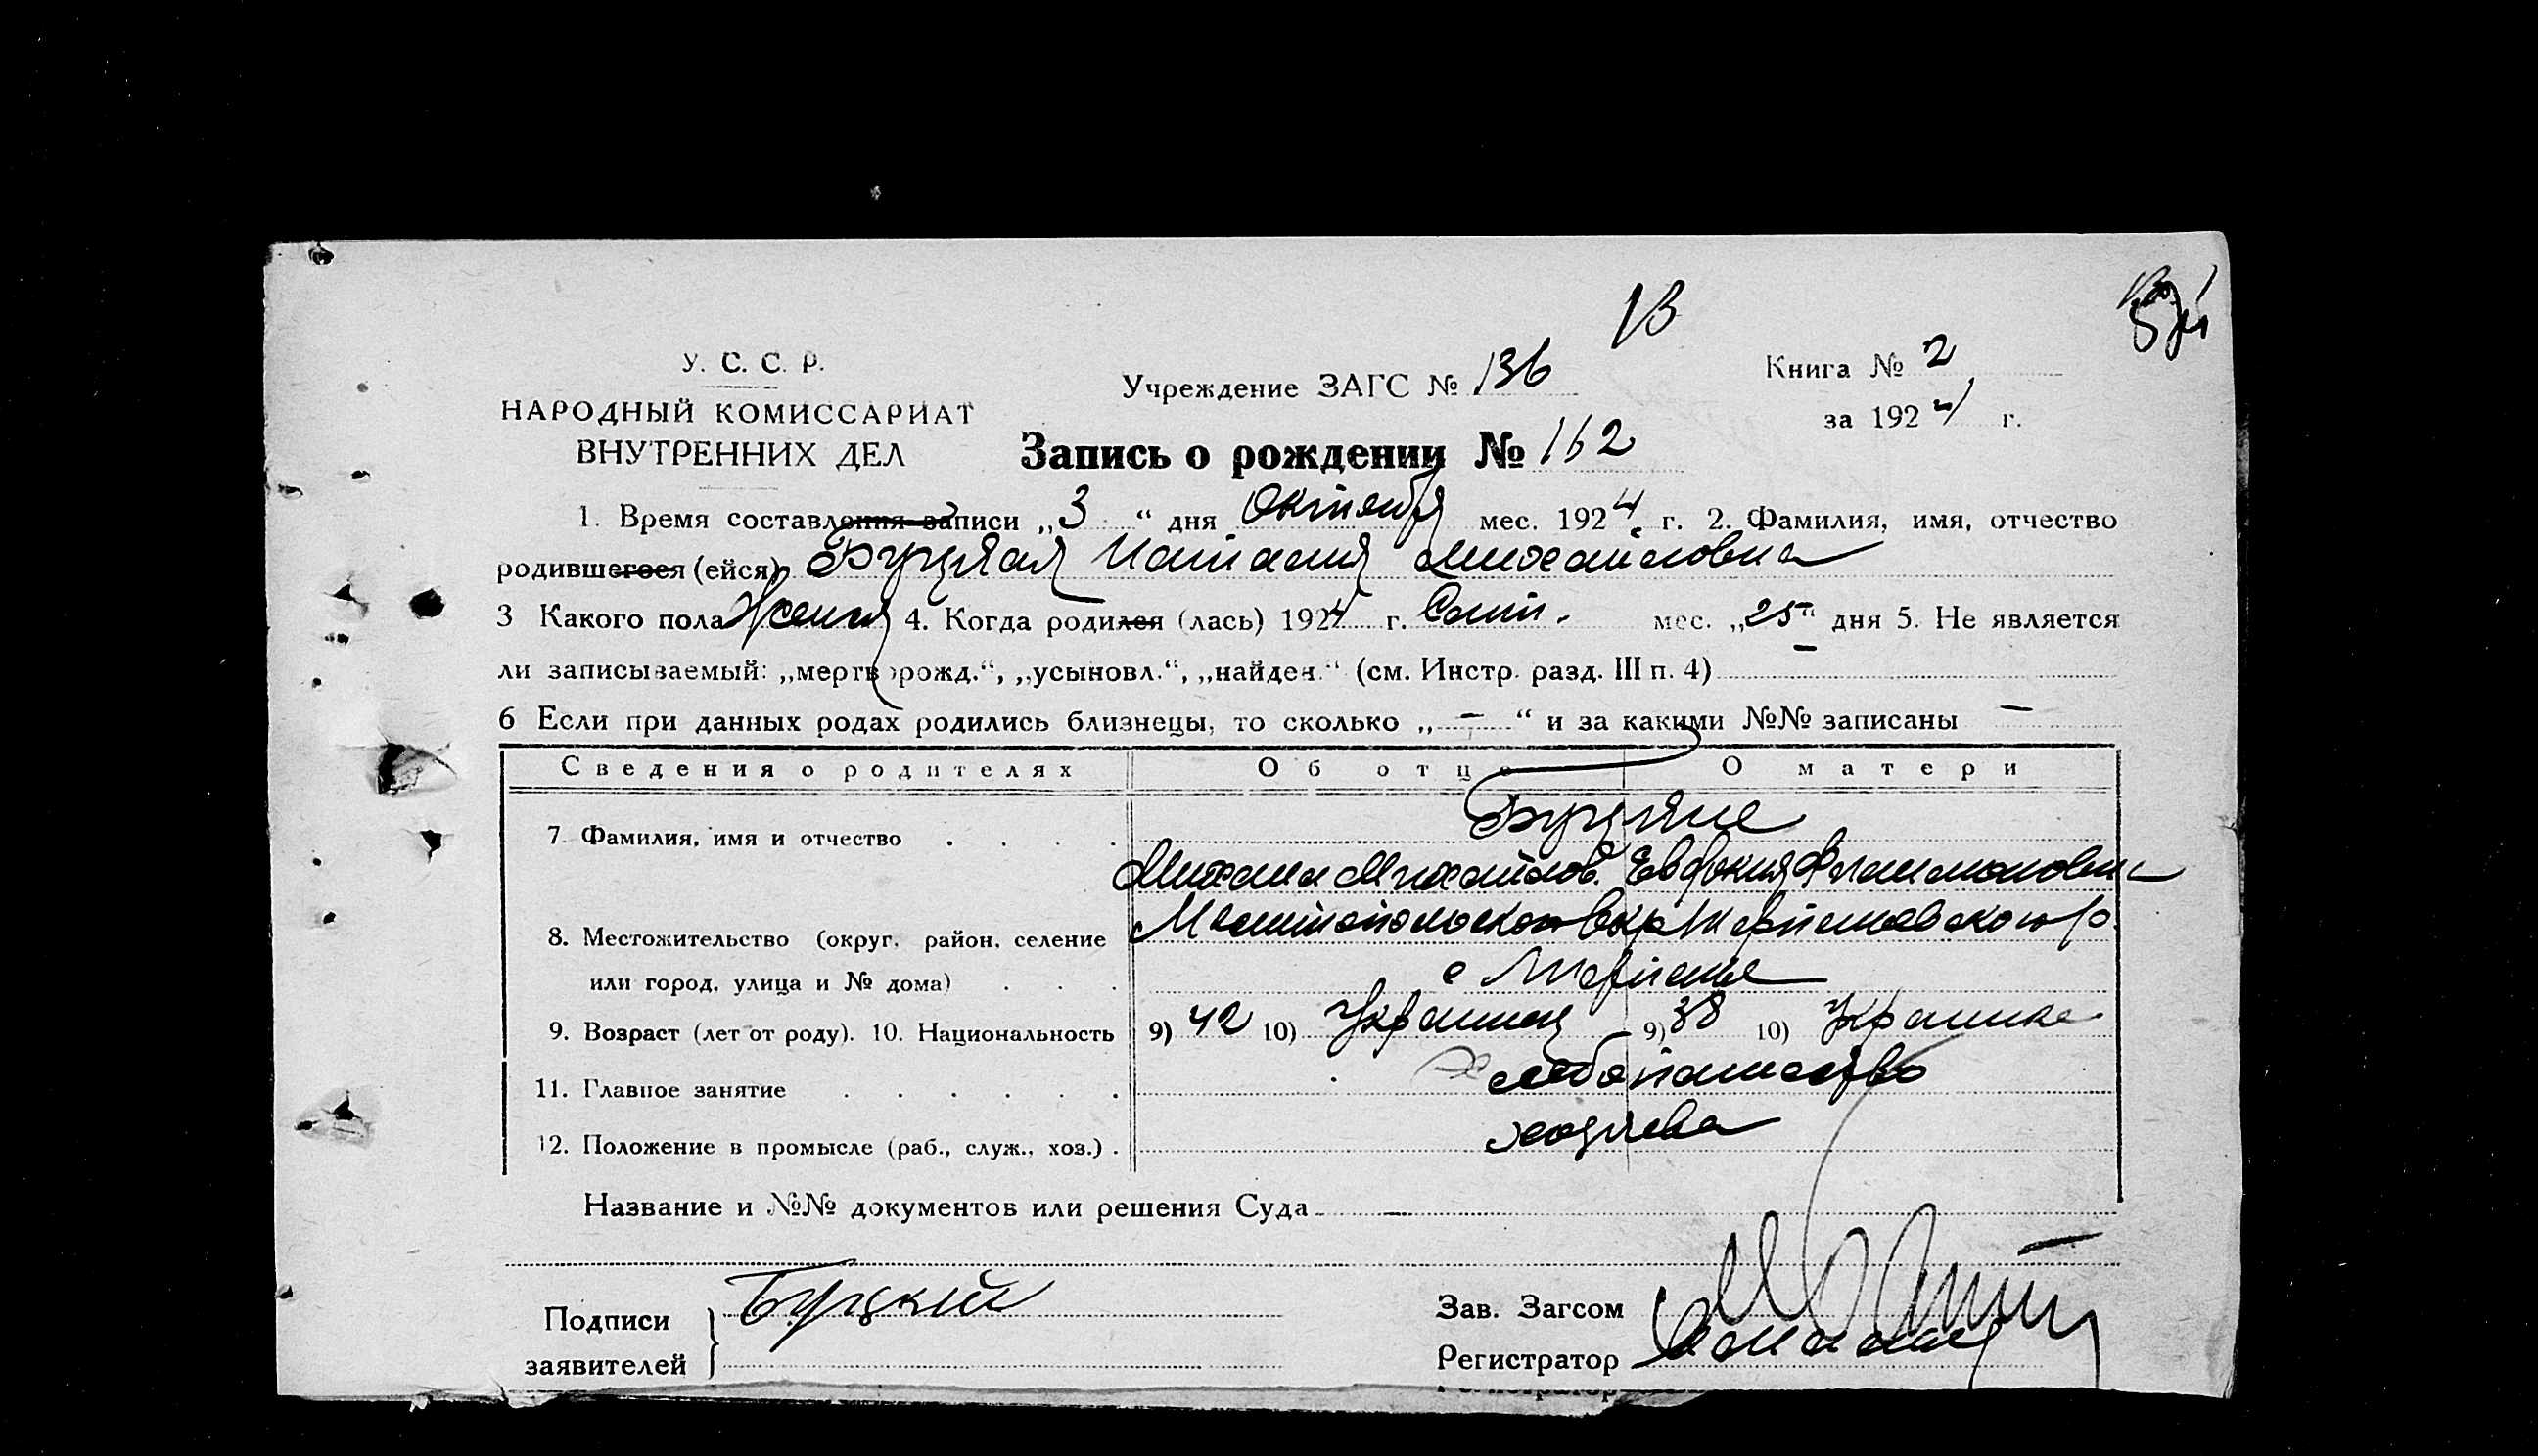 13
У. С. С. Р.
НАРОДНЫЙ КОМИССАРИАТ
ВНУТРЕННИХ ДЕЛ
Учреждение ЗАГС № 136
Книга № 2
за 1924 г.
Запись о рождении № 162
1. Время составления записи „3“ дня Октября мес. 1924 г. 2. Фамилия, имя, отчество
родившегося (ейся) Буцкая Наталия Михайловна
3 Какого пола Женск 4. Когда родился (лась) 1924 г. Сент. мес. „25“ дня 5. Не является
ли записываемый: „мертворожд.“, „усыновл.“, „найден.“ (см. Инстр. разд. III п. 4) —
6 Если при данных родах родились близнецы, то сколько „—“ и за какими №№ записаны —
Сведения о родителях Об отце О матери
7. Фамилия, имя и отчество Буцкие
Михаил Михайлов. Евдокия Филимоновна
8. Местожительство (округ, район, селение Мелитопольского Окр
или город, улица и № дома) с
9. Возраст (лет от роду). 10. Национальность 9) 42 10) Украинец 9) 38 10) Украинка
11. Главное занятие Хлебопашество
12. Положение в промысле (раб., служ., хоз.) хозяева
Название и №№ документов или решения Суда —
Подписи заявителей Буцкий
Зав. Загсом
Регистратор